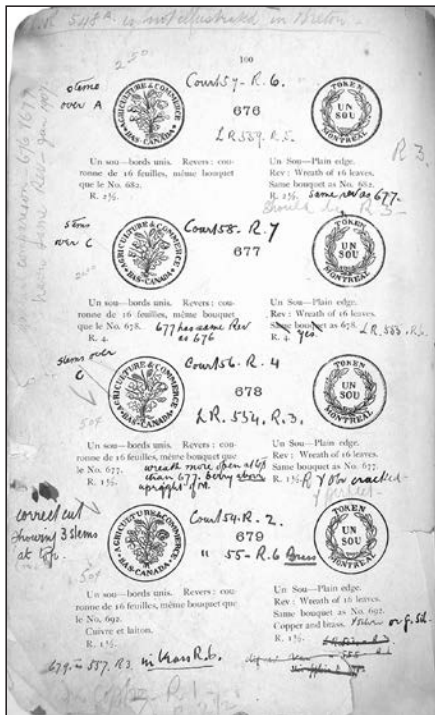 548A is not illustrated in Breton.
250
100
stems
over A
AGRICULTURE & COMMERCE
BAS-CANADA
Court 57-R.6.
676
LR 559. R.5.
TOKEN
UN
SOU
MONTREAL
R 3
Un sou—bords unis. Revers : cou-
ronne de 16 feuilles, même bouquet
que le No. 682.
R. 2½.
Un Sou—Plain edge.
Rev: Wreath of 16 leaves.
Same bouquet as No. 682.
R. 2½. Same rev as 677.
Should be R 3-
stems
over C
AGRICULTURE & COMMERCE
BAS-CANADA
Court 58-R.7
677
TOKEN
UN
SOU
MONTREAL
Un sou—bords unis. Revers : cou-
ronne de 16 feuilles, même bouquet
que le No. 678.
R. 4.
677 has same Rev
as 676
Un Sou—Plain edge.
Rev : Wreath of 16 leaves.
Same bouquet as 678.
R. 4. yes.
LR. 553. R.6.
stems over
C
50¢
AGRICULTURE & COMMERCE
BAS-CANADA
Court 56. R. 4
678
LR. 554. R.3.
TOKEN
UN
SOU
MONTREAL
Un sou—bords unis. Revers : cou-
ronne de 16 feuilles, même bouquet que
le No. 677.
R. 1½.
wreath more open at top
than 677. berry above
upright of M.
Un Sou—Plain edge.
Rev : Wreath of 16 leaves.
Same bouquet as No. 677.
R. 1½. R & Obv cracked
correct cut
showing 3 stems
at top.
50¢
AGRICULTURE & COMMERCE
BAS-CANADA
Court 54-R.2.
679
" 55-R.6 Brass
TOKEN
UN
SOU
MONTREAL
Un sou—bords unis. Revers : cou-
ronne de 16 feuilles, même bouquet que
le No. 692.
Cuivre et laiton.
R. 1½.
Un Sou—Plain edge.
Rev : Wreath of 16 leaves.
Same bouquet as No. 692.
Copper and brass.
R. 1½.
679 is 557. R3. in brass R.6.